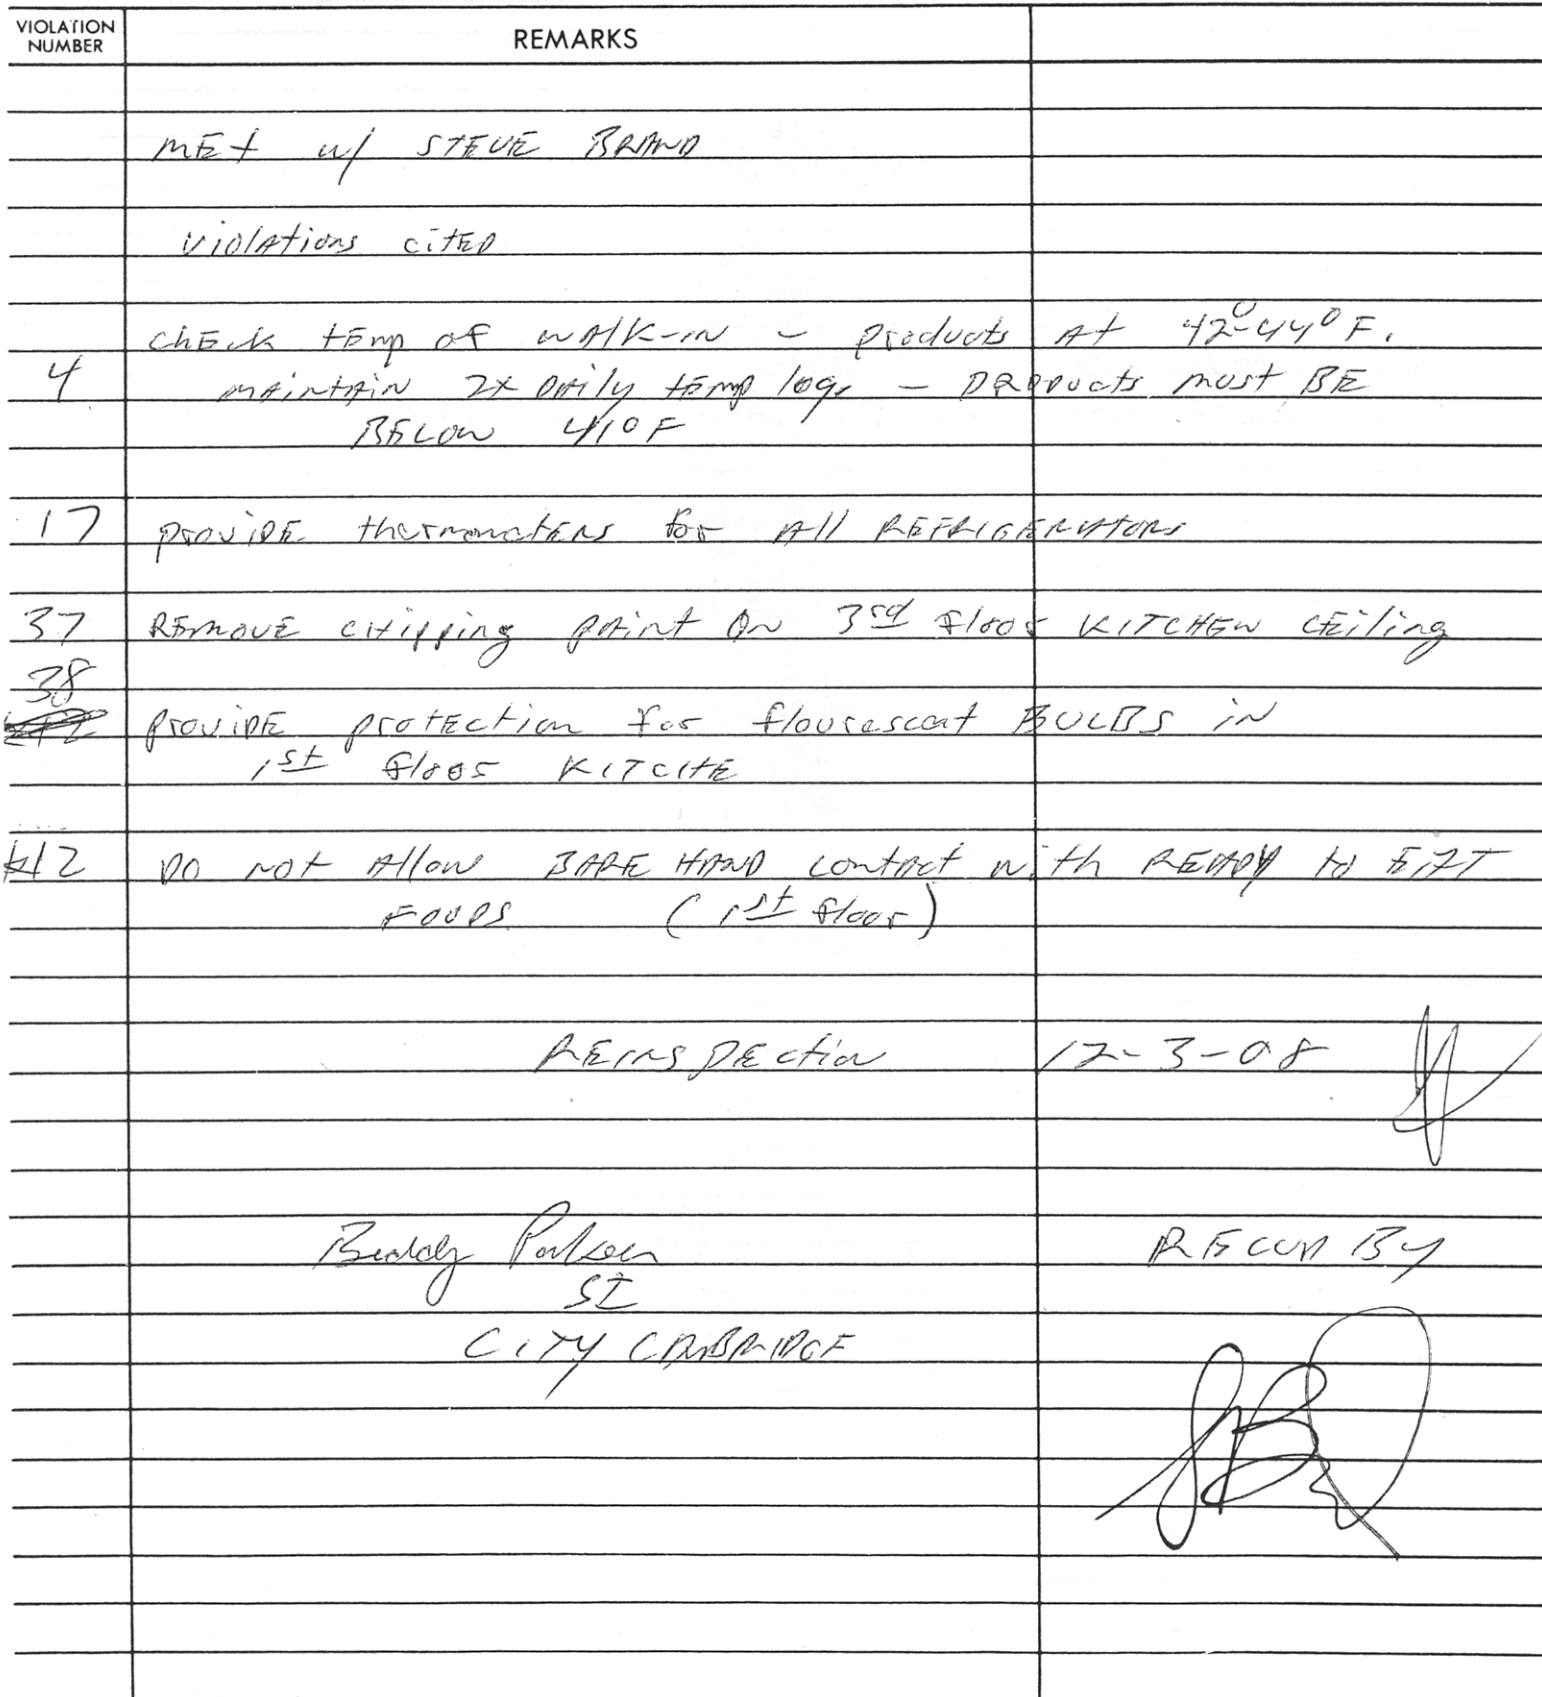 VIOLATION
NUMBER
REMARKS
MEt w/ STEVE BRAND
violAtions citED
chEck tEmp of wAlk-in - products At 42°-44° F.
4 mAintAin 2x DAily tEmp log, - PRODucts must BE
BELOW 41° F
17 proviDE thermometERs for All REFRIGERATORS
37 REmovE cHipping pAint ON 3rd floor KITCHEN CEiling
38
proviDE protECtion for flourescent BULBS iN
1st floor KITCHE
12 DO NOt Allow BARE HAND contAct with READY to EAT
FOODS (1st floor)
REINSPECtion 12-3-08
Buddy Packer RECVD BY
SI
CITY CAMBRIDGE